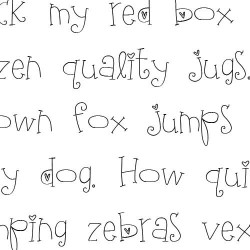 ck my red box
zen quality jugs.
own fox jumps
y dog. How qui
mping zebras vex